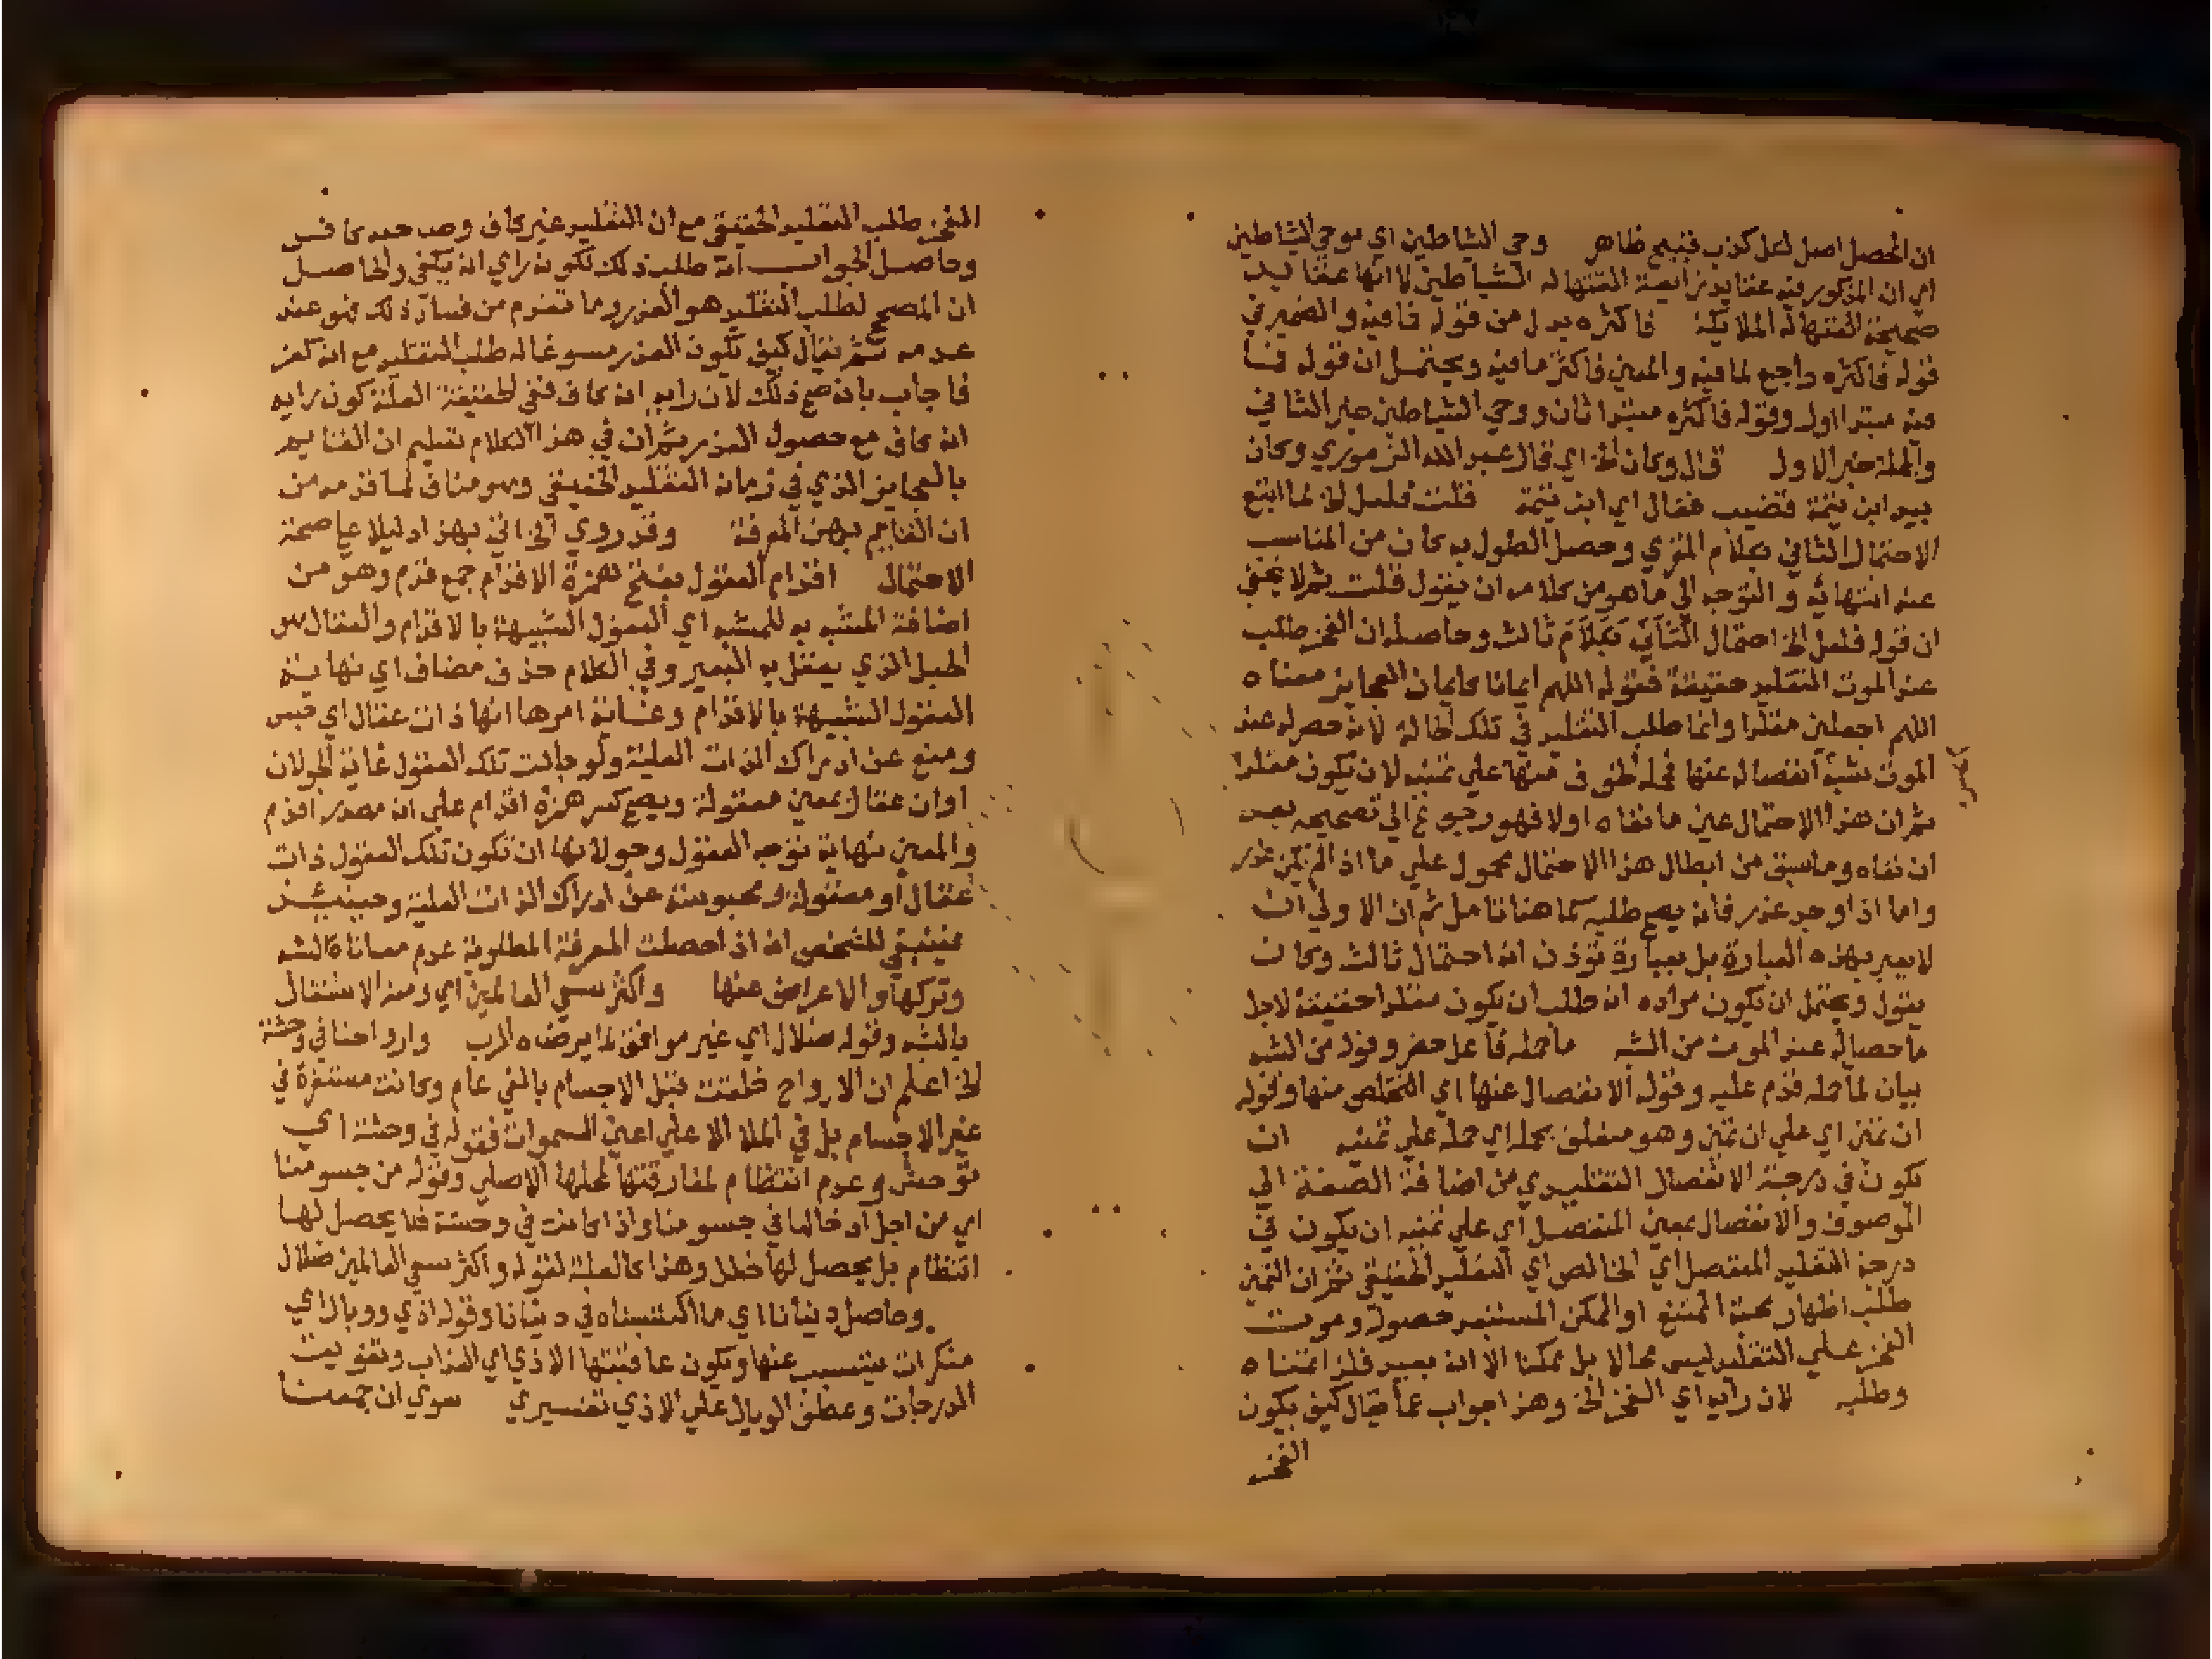 ان المحصل اصل لكل كذب فقبيح ظاهر وحي الشياطين اي موحي الشياطين
اي ان المذكور فيه عقايد زايفة القتها له الشياطين لا انها عقايد
صحيحة القتها له الملايكة فاكثره بدل من قوله فما فيه والضمير في
قوله فاكثره راجع لما فيه والمعني فاكثر ما فيه ويحتمل ان قوله فما
فيه مبتدا اول وقوله فاكثره مبتدا ثان ووحي الشياطين خبر الثاني
والجملة خبر الاول قال وكان الخ اي قال عبد الله الزموري وكان
بيد ابن تيمة قضيب فقال اي ابن تيمة قلت فلعل الخ لما اتبع
الاحتمال الثاني بكلام المقري وحصل الطول به كان من المناسب
عند انتهائه والتوجه الي ما هو من كلامه ان يقول قلت ثم لا يخفي
ان قوله فلعل الخ احتمال الثاني بكلام ثالث وحاصله ان الفخر طلب
عند الموت التقليد حقيقة فقوله اللهم ايمانا كايمان العجايز معناه
اللهم اجعلني مقلدا وانما طلب التقليد في تلك الحالة لانه حصر له عند
الموت شبه انفصاله عنها فحمله الخوف منها علي تمنيه لان يكون مقلدا
ثم ان هذا الاحتمال عين ما نفاه اولا فهو رجوع الي تصحيحه بعد
ان نفاه وما سبق من ابطال هذا الاحتمال محمول علي ما اذا لم يكن عذر
واما اذا وجد عذر فانه يصح طلبه كما هنا تامل ثم ان الاولي ان
لا يعبر بهذه العبارة بل بعبارة تؤذن انه احتمال ثالث وكان
يقول ويحتمل ان يكون مراده انه طلب ان يكون مقلدا حقيقة لاجل
ما حصل له عند الموت من الشبه ما حمله فاعل حضر وقوله من الشبه
بيان لما حمله قدم عليه وقوله الانفصال عنها اي التخلص منها وقوله
ان تمني اي علي ان تمني وهو متعلق بحمله اي حمله علي تمنيه ان
يكون في درجة الانفصال التقليدي من اضافة الصفة الي
الموصوف والانفصال بمعني المنفصل اي علي تمنيه ان يكون في
درجة التقليد المنفصل اي الخالص اي التقليد الحقيقي ثم ان التمني
طلب اظهار محبة الممتنع او الممكن المستبعد حصوله وموت
الفخر علي التقليد ليس محالا بل ممكنا الا انه بعيد فلذا تمناه
وطلبه لان رايه اي الفخر الخ وهذا جواب عما يقال كيف يكون
الفخر
الفخر طلب التقليد الحقيقي مع ان التقليد غير كاف وصاحبه كافر
وحاصل الجواب انه طلب ذلك لكونه راي انه يكفي والحاصل
ان المصحح لطلب التقليد هو العذر وما تقدم من فساد ذلك فهو عند
عدمه ثم يقال كيف يكون العذر مسوغا له طلب التقليد مع انه كفر
فاجاب بانه صح ذلك لان رايه انه كاف ففي الحقيقة العلة كون رايه
انه كاف مع حصول العذر ثم ان في هذا الكلام تسليم ان القايم
بالعجايز الذي في زمانه التقليد الحقيقي وهو مناف لما قدمه من
ان القايم بهن المعرفة وقد روي الخ اتي بهذا دليلا علي صحة
الاحتمال اقدام العقول بفتح همزة الاقدام جمع قدم وهو من
اضافة المشبه به للمشبه اي العقول الشبيهة بالاقدام والعقال هو
الحبل الذي يعقل به البعير وفي الكلام حذف مضاف اي نهاية
العقول الشبيهة بالاقدام وغاية امرها انها ذات عقال اي حبس
ومنع عن ادراك الذات العلية ولو جالت تلك العقول غاية الجولان
او ان عقال بمعني معقولة ويصح كسر همزة اقدام علي انه مصدر اقدم
والمعني نهاية توجه العقول وجولانها ان تكون تلك العقول ذات
عقال او معقولة ومحبوسة عن ادراك الذات العلية وحينئذ
فينبغي للشخص انه اذا حصلت المعرفة المطلوبة عدم معاناة الشبه
وتركها والاعراض عنها واكثر سعي العالمين اي ومنه الاشتغال
بالشبه وقوله ضلال اي غير موافق لما يرضاه الرب وارواحنا في وحشة
الخ اعلم ان الارواح خلقت قبل الاجسام بالفي عام وكانت مستقرة في
غير الاجسام بل في الملا الاعلي اعني السموات فقوله في وحشة اي
توحش وعدم انتظام لمفارقتها لمحلها الاصلي وقوله من جسومنا
اي من اجل ادخالها في جسومنا واذا كانت في وحشة فلا يحصل لها
انتظام بل يحصل لها خلل وهذا كالعلة لقوله واكثر سعي العالمين ضلال
وحاصل دنيانا اي ما اكتسبناه في دنيانا وقوله اذي ووبال اي
منكرات يتسبب عنها ويكون عاقبتها الاذي اي العذاب وتفويت
الدرجات وعطف الوبال علي الاذي تفسيري سوي ان جمعنا